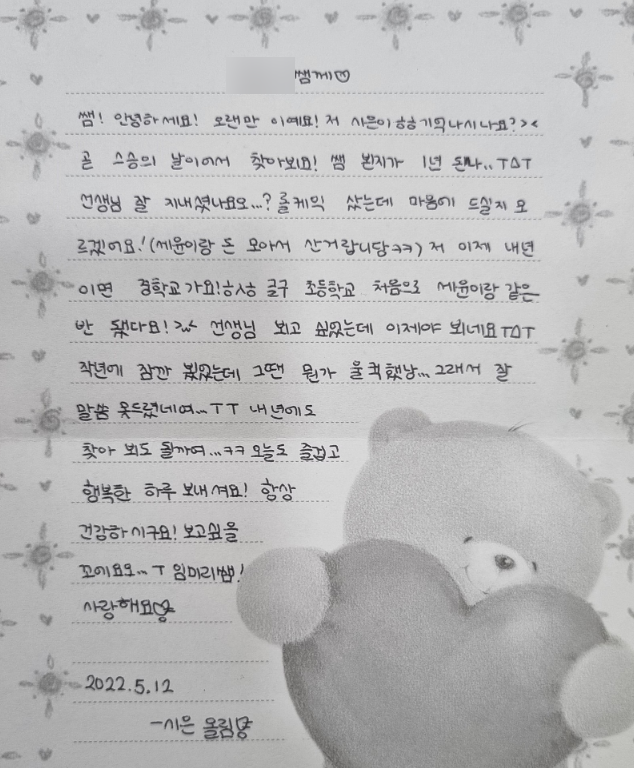 쌤께♡
쌤! 안녕하세요! 오랜만 이예요! 저 시은이 ㅎㅎ 기억나시나요? ><
곧 스승의 날이여서 찾아봬요! 쌤 뵌지가 1년 됐나.. ㅜㅿㅜ
선생님 잘 지내셨나요오...? 롤케익 샀는데 마음에 드실지 모
르겠어요! (세윤이랑 돈 모아서 산거랍니당ㅋㅋ) 저 이제 내년
이면 중학교가요! ㅎㅅㅎ 글구 초등학교 처음으로 세윤이랑 같은
반 됐다요! >< 선생님 뵈고 싶었는데 이제야 뵈네요 ㅜㅿㅜ
작년에 잠깐 뵀었는데 그땐 뭔가 울컥했낭... 그래서 잘
말씀 못드렸네여... ㅜㅜ 내년에도
찾아 봬도 될까여... ㅋㅋ 오늘도 즐겁고
행복한 하루 보내셔요! 항상
건강하시구요! 보고싶을
꼬에요오... ㅜ 임미리쌤!
사랑해요♡
2022.5.12
-시은 올림